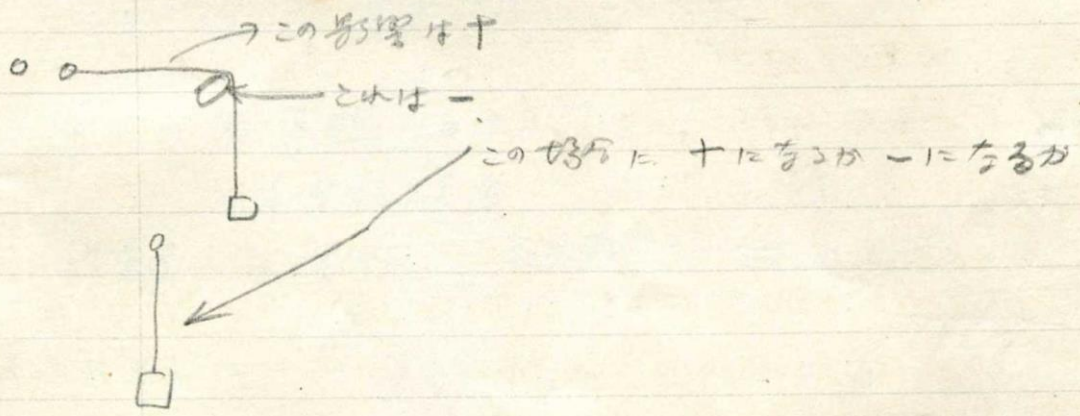 この影響は＋
これは －
この場合に ＋になるか －になるか